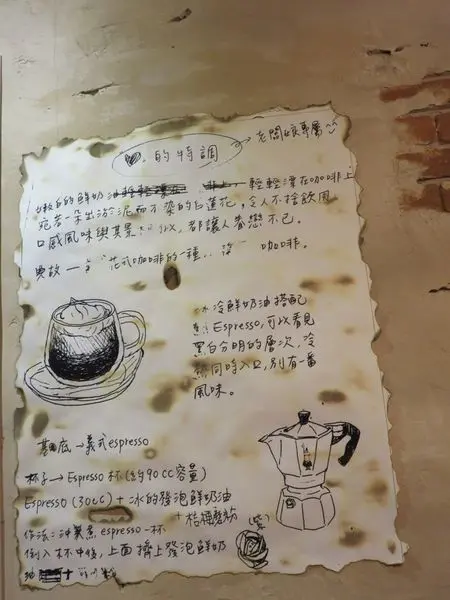 的特調
老闆娘專屬
嫩白的鮮奶油 輕輕漂在咖啡上
宛若一朵出淤泥而不染的白蓮花,令人不捨飲用
口感風味與其景 ,都讓人眷戀不已。
典故 花式咖啡的一種 咖啡。
冰冷鮮奶油搭配
Espresso,可以看見
黑白分明的層次,冷
熱同時入口,別有一番
風味。
基底→義式espresso
杯子→Espresso杯(約90cc容量)
Espresso(30cc)+冰的發泡鮮奶油
+桔梗蘑菇
(紫)
作法:沖煮 espresso一杯
倒入杯中後,上面擠上發泡鮮奶
油 +